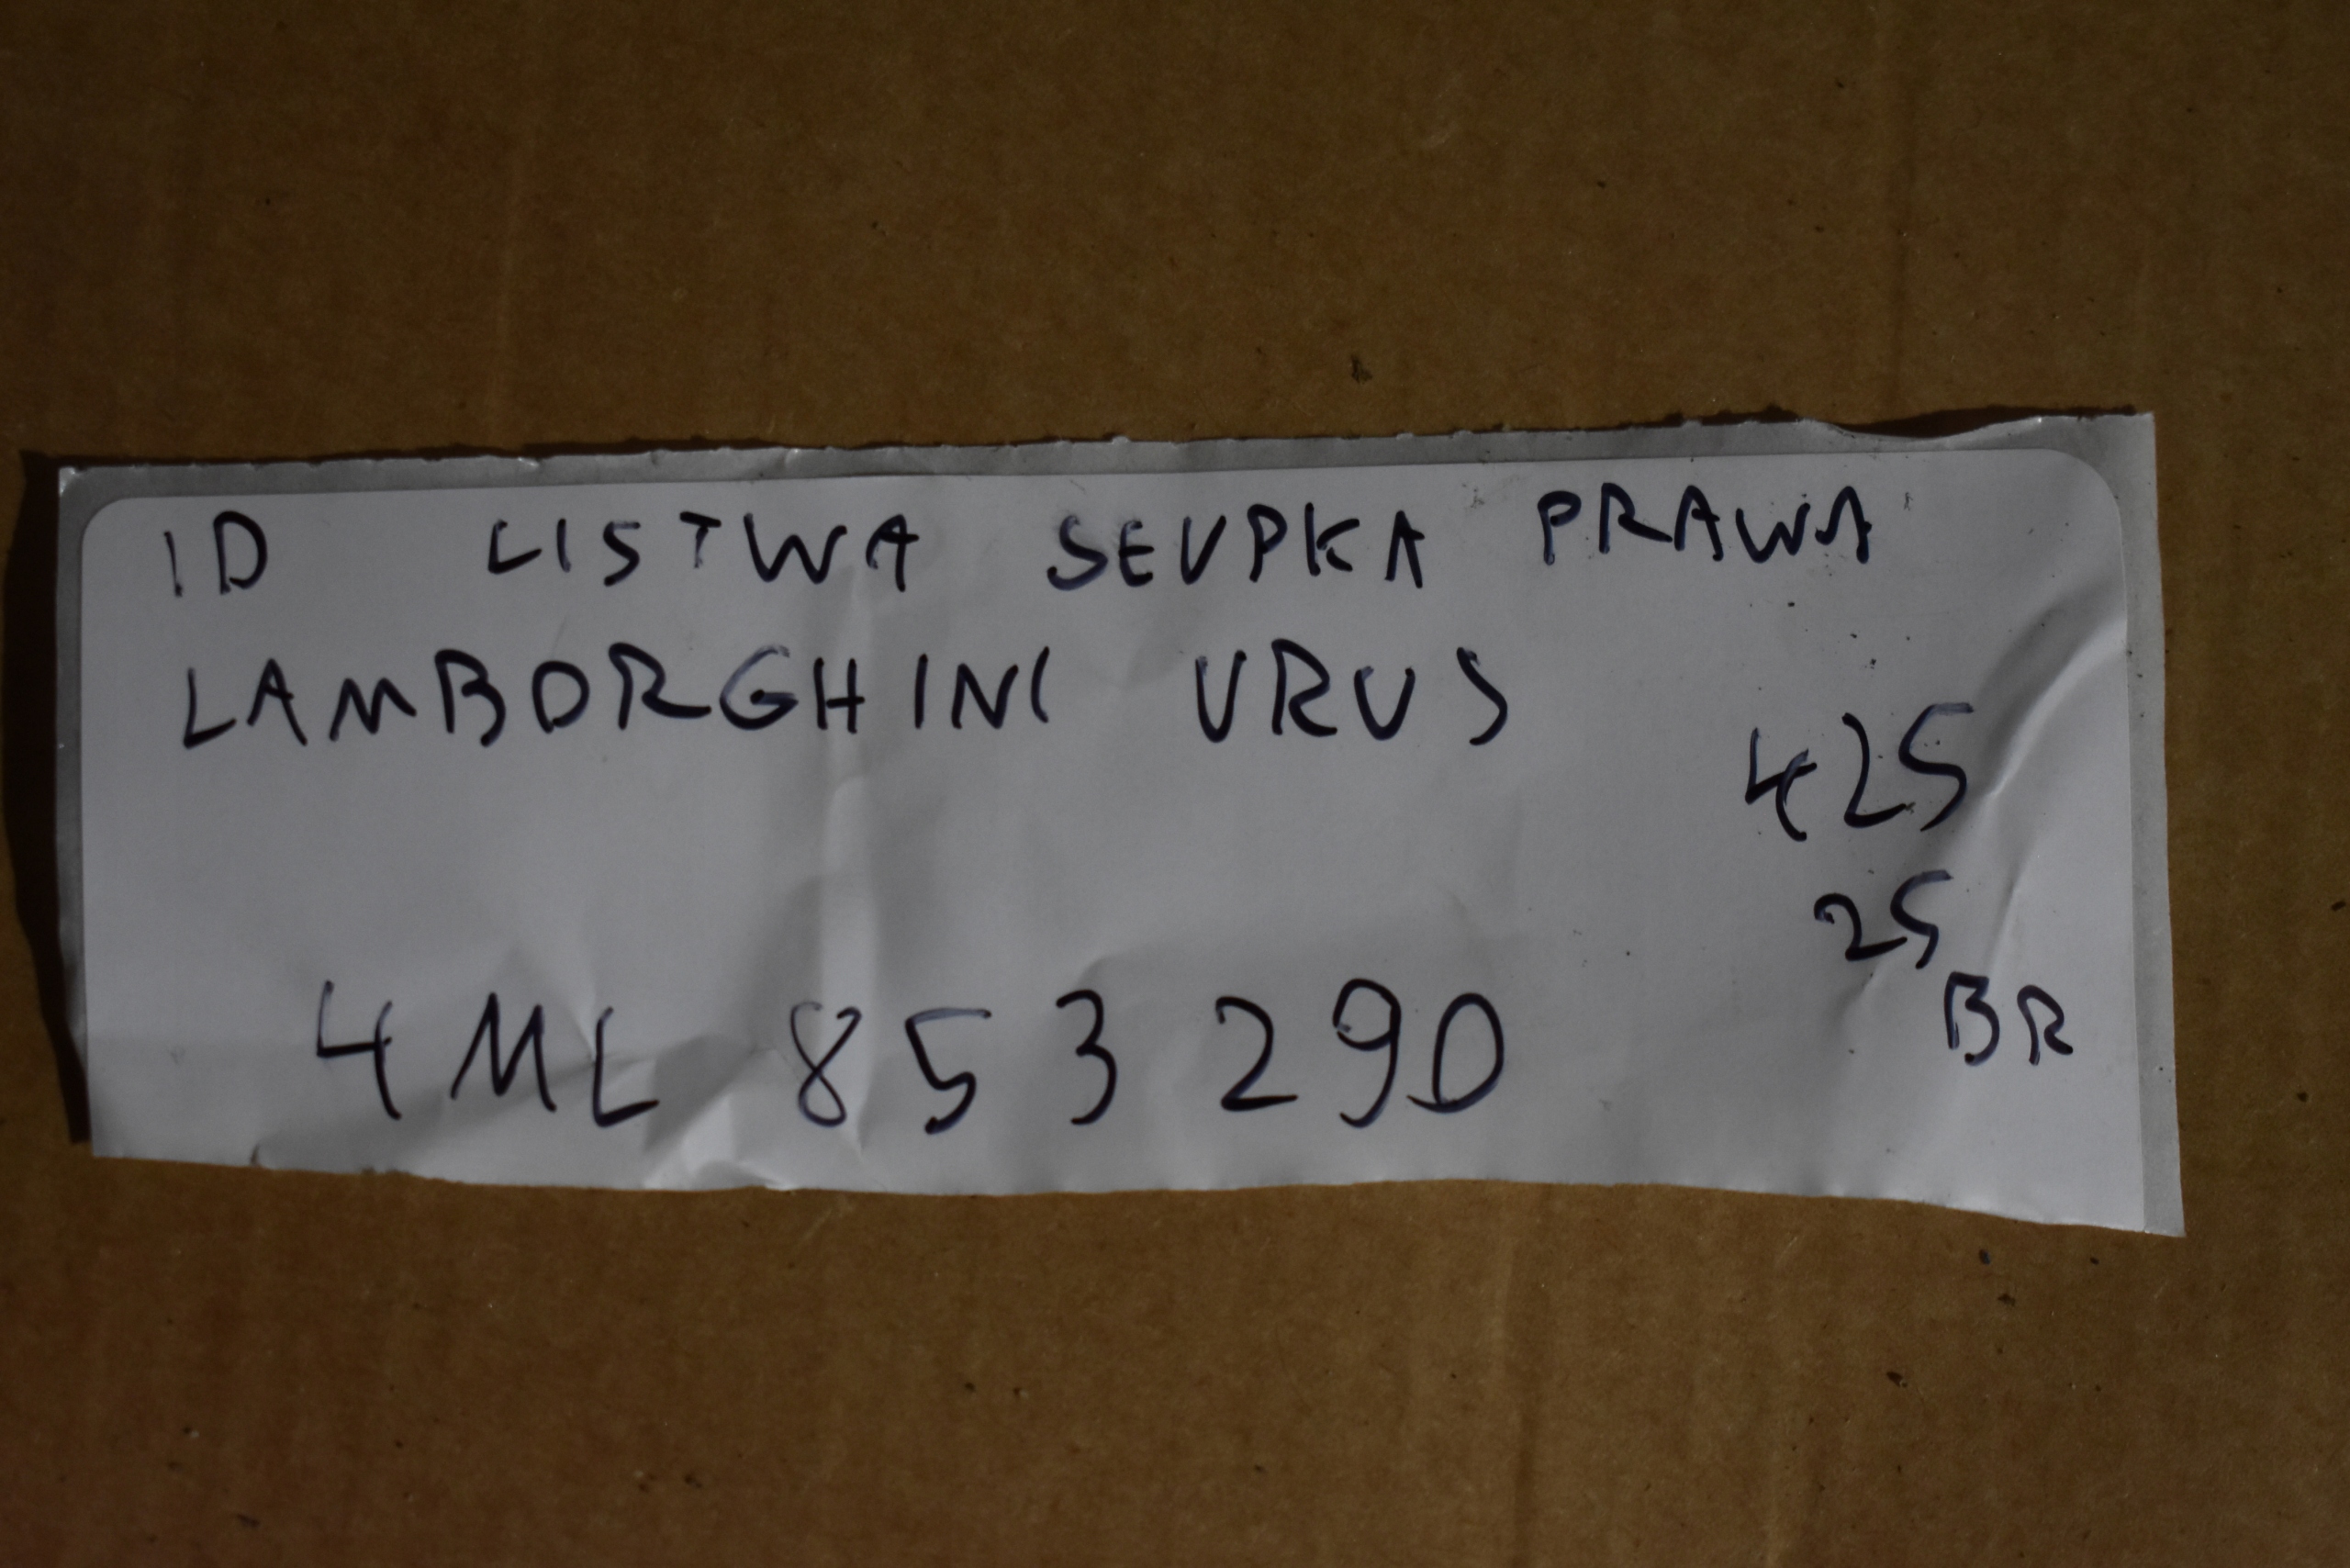 ID LISTWA SEUPKA PRAWA
LAMBORGHINI URUS
425
25
BR
4ML 853 290